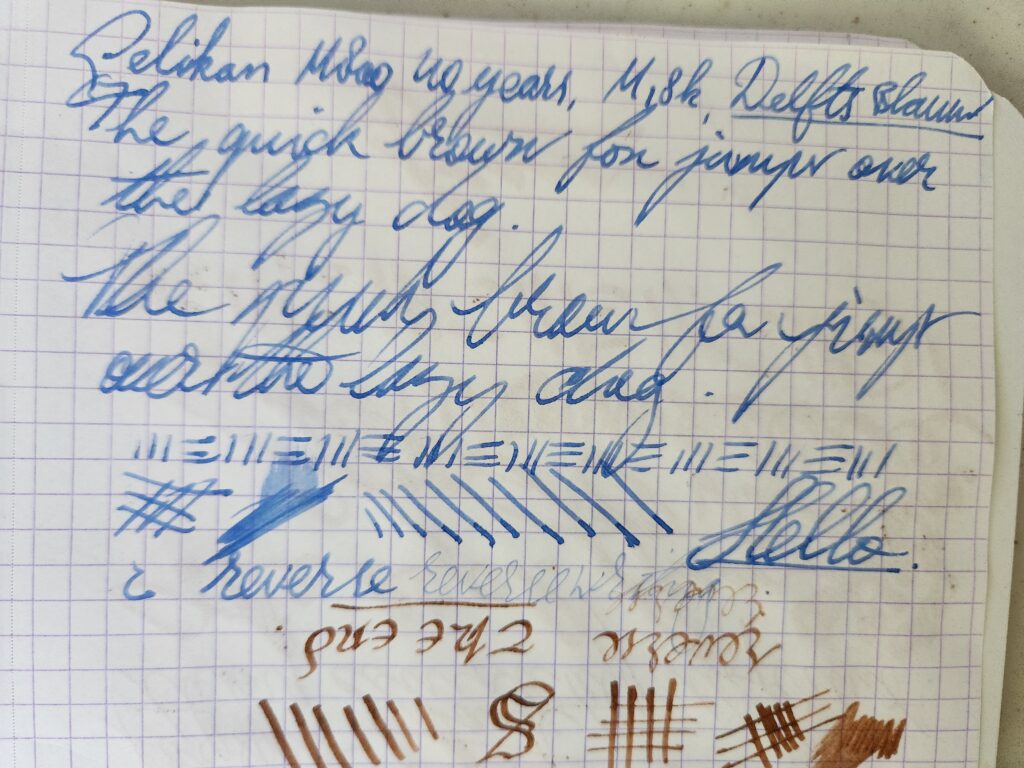 Pelikan M800 40 years, M, 18k, Delfts Blauw
The quick brown fox jumps over
the lazy dog.
The quick brown fox jumps
over the lazy dog.
Hello.
r reverse reverse writing
reverse
The end
S